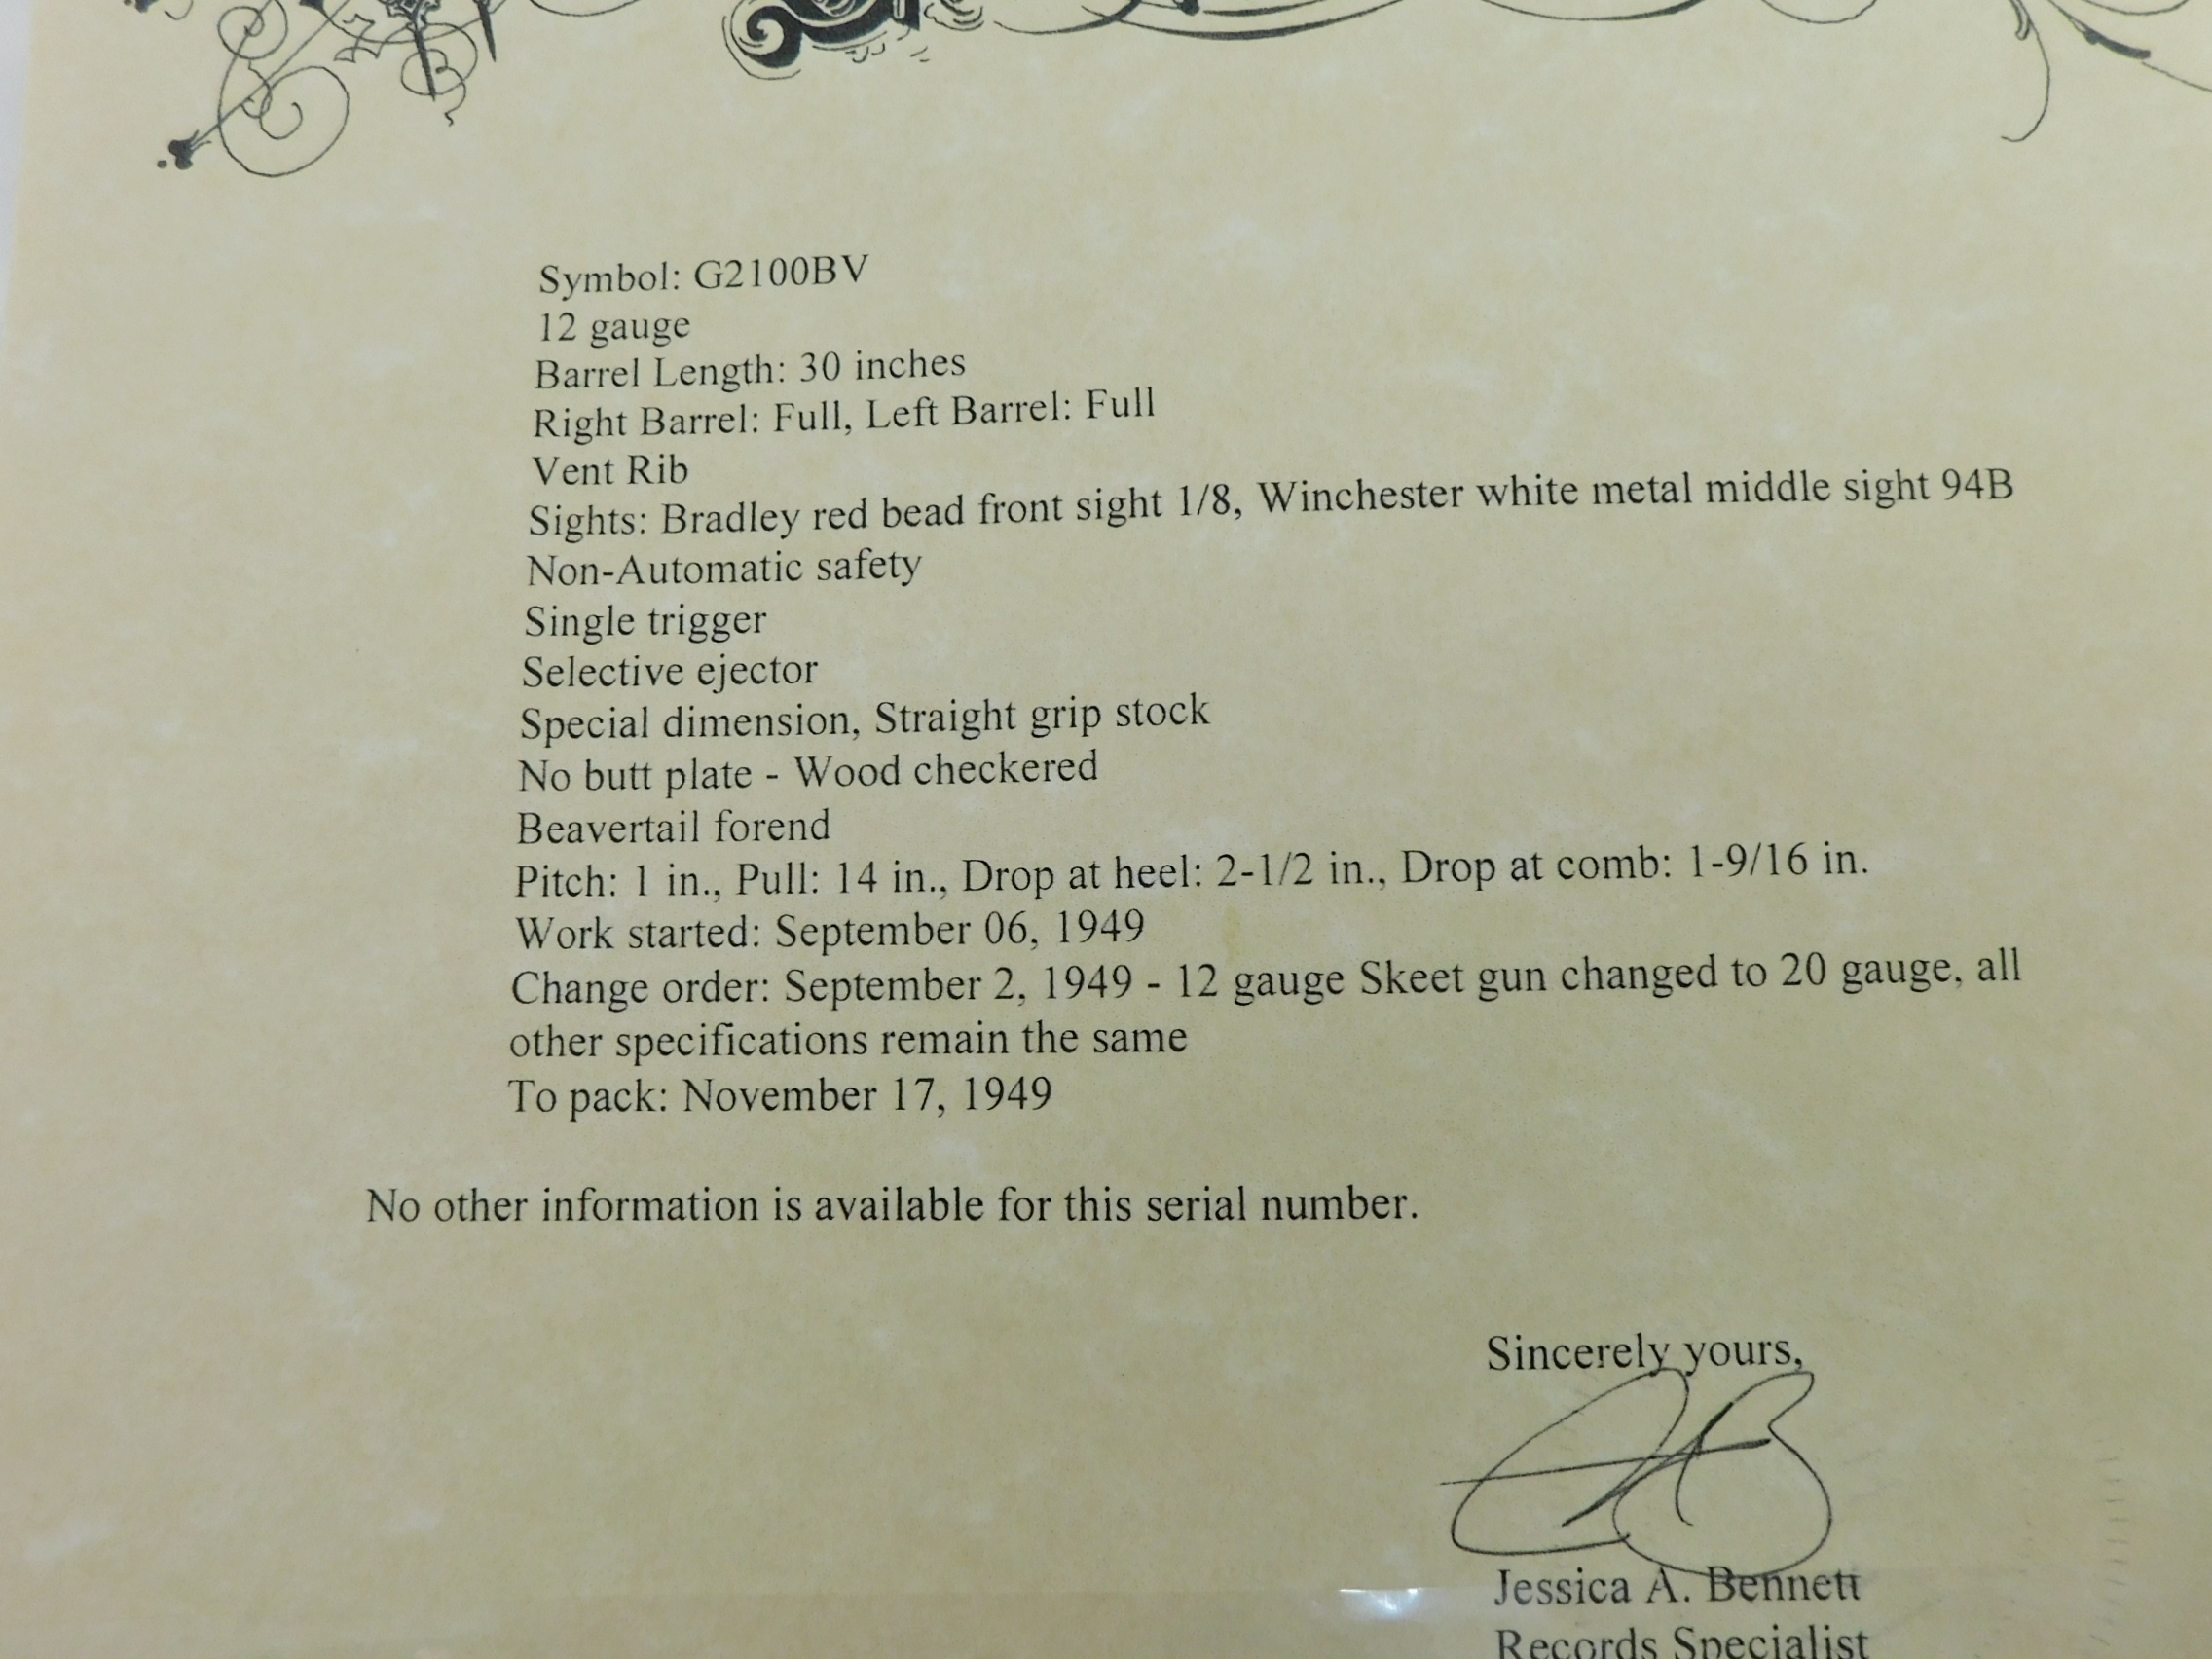 Symbol: G2100BV
12 gauge
Barrel Length: 30 inches
Right Barrel: Full, Left Barrel: Full
Vent Rib
Sights: Bradley red bead front sight 1/8, Winchester white metal middle sight 94B
Non-Automatic safety
Single trigger
Selective ejector
Special dimension, Straight grip stock
No butt plate - Wood checkered
Beavertail forend
Pitch: 1 in., Pull: 14 in., Drop at heel: 2-1/2 in., Drop at comb: 1-9/16 in.
Work started: September 06, 1949
Change order: September 2, 1949 - 12 gauge Skeet gun changed to 20 gauge, all
other specifications remain the same
To pack: November 17, 1949
No other information is available for this serial number.
Sincerely yours,
Jessica A. Bennett
Records Specialist